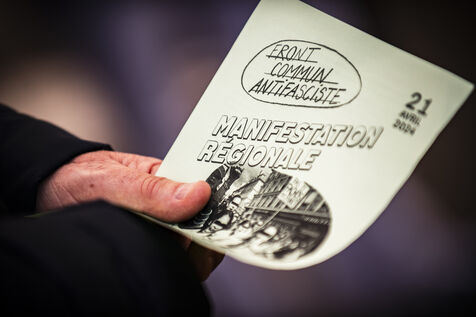 FRONT
COMMUN
ANTIFASCISTE
21
AVRIL
2024
MANIFESTATION
RÉGIONALE